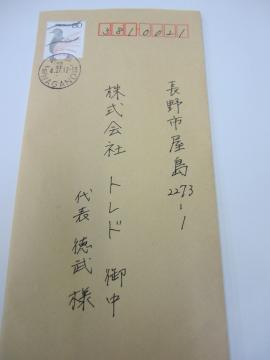 80
3810021
NAGANO
長野市屋島
2273-1
株式会社 トレド 御中
代表 徳武 様